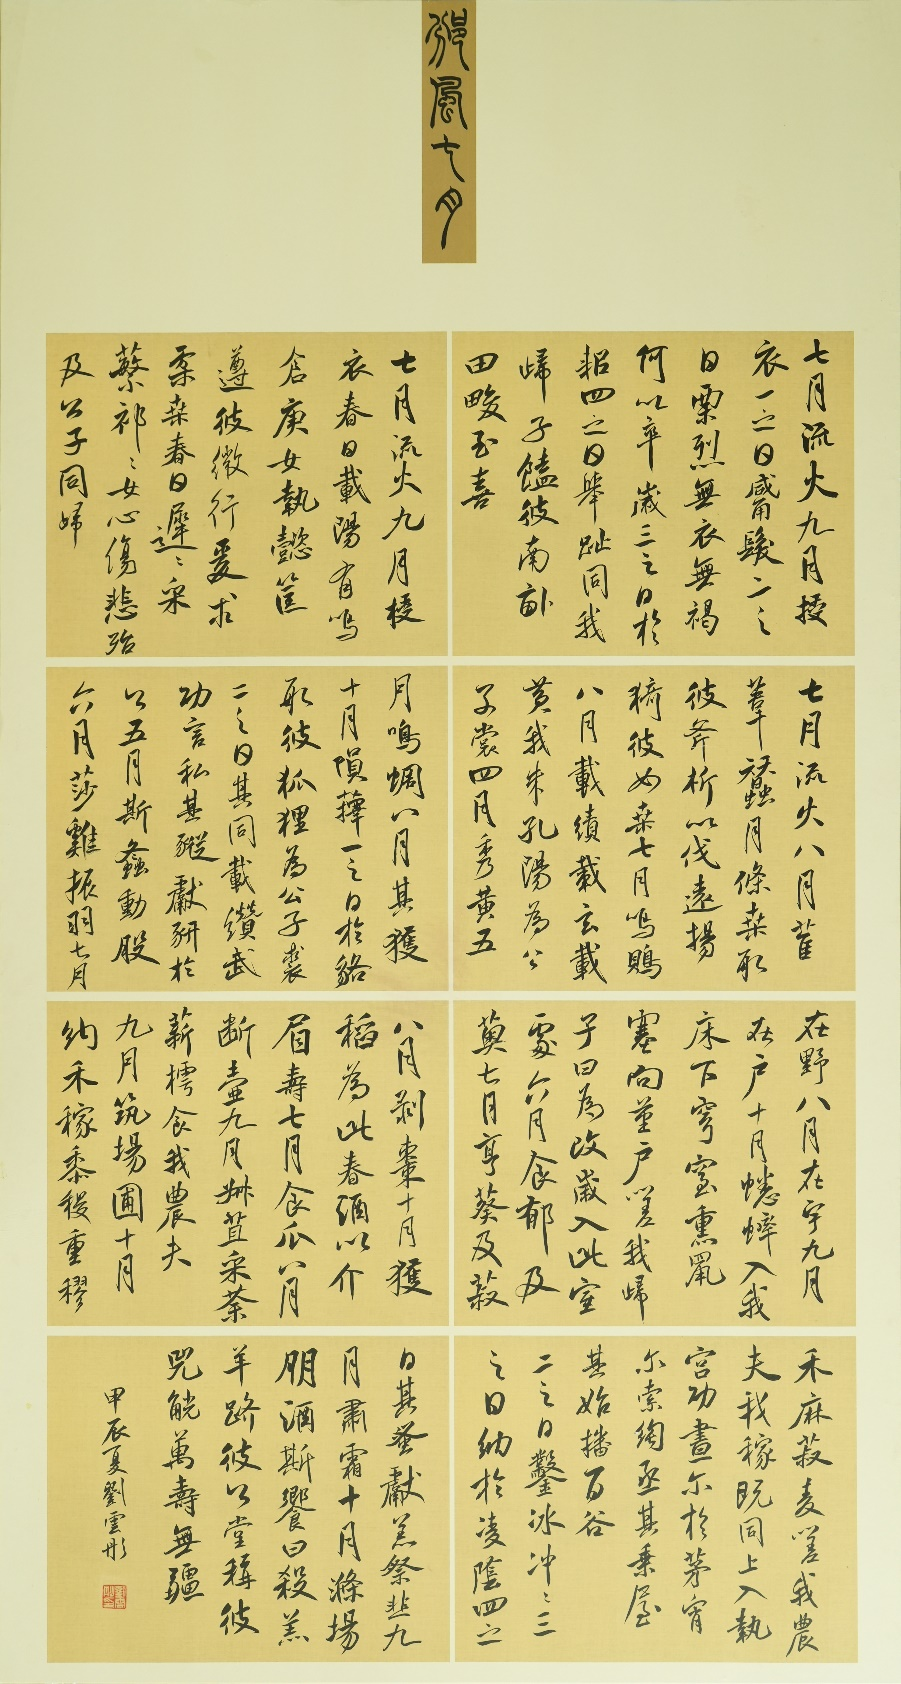 豳風七月
七月流火九月授
衣一之日觱發二之
日栗烈無衣無褐
何以卒歲三之日於
耜四之日舉趾同我
婦子饁彼南畝
田畯至喜
七月流火九月授
衣春日載陽有鳴
倉庚女執懿筐
遵彼微行爰求
柔桑春日遲〻采
蘩祁〻女心傷悲殆
及公子同歸
七月流火八月萑
葦蠶月條桑取
彼斧斨以伐遠揚
猗彼女桑七月鳴鵙
八月載績載玄載
黃我朱孔陽為公
子裳四月秀葽五
月鳴蜩八月其獲
十月隕蘀一之日於貉
取彼狐狸為公子裘
二之日其同載纘武
功言私其豵獻豜於
公五月斯螽動股
六月莎雞振羽七月
在野八月在宇九月
在戶十月蟋蟀入我
床下穹窒熏鼠
塞向墐戶嗟我婦
子曰為改歲入此室
處六月食郁及
薁七月亨葵及菽
八月剝棗十月獲
稻為此春酒以介
眉壽七月食瓜八月
斷壺九月叔苴采荼
薪樗食我農夫
九月筑場圃十月
納禾稼黍稷重穋
禾麻菽麥嗟我農
夫我稼既同上入執
宮功晝尔於茅宵
尔索綯亟其乘屋
其始播百谷
二之日鑿冰冲〻三
之日納於凌陰四之
日其蚤獻羔祭韭九
月肅霜十月滌場
朋酒斯饗曰殺羔
羊躋彼公堂稱彼
兕觥萬壽無疆
甲辰夏劉雲彤